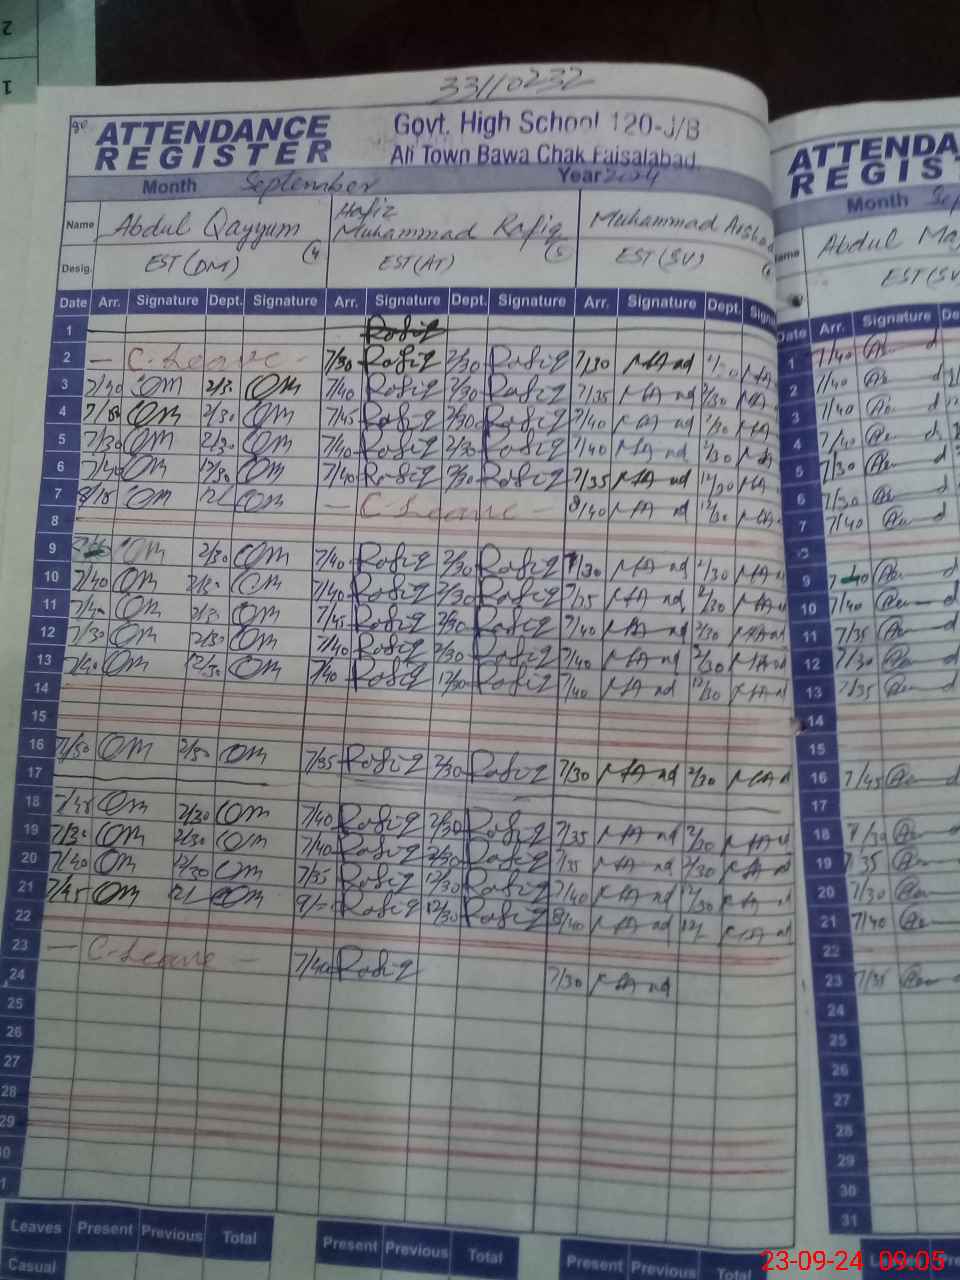 2
1
33110232
ATTENDANCE REGISTER
Govt. High School 120-J/B
Ali Town Bawa Chak Faisalabad.
Month September Year 2024
Name Abdul Qayyum Hafiz Muhammad Rafiq Muhammad
Desig. EST(DM) EST(AT) EST(SV)
Date Arr. Signature Dept. Signature Arr. Signature Dept. Signature Arr. Signature Dept.
1 Rafiq
2 - C-Leave - 7/30 Rafiq 2/30 Rafiq 7/30 MA nd
3 7/40 OM 2/30 OM 7/40 Rafiq 2/30 Rafiq 7/35 MA nd 2/30 MA
4 OM 2/30 OM 7/45 Rafiq 2/30 Rafiq 7/40 MA nd MA
5 7/30 OM 2/30 OM 7/40 Rafiq 2/30 Rafiq 7/40 MA nd 2/30 MA
6 7/40 OM 12/30 OM 7/40 Rafiq 12/30 Rafiq 7/35 MA nd 12/30 MA
7 8/15 OM 12/ OM - C-Leave - 8/40 MA nd 12/30 MA
8
9 OM 2/30 OM 7/40 Rafiq 2/30 Rafiq 7/30 MA nd 2/30 MA
10 7/40 OM 2/30 OM 7/40 Rafiq 2/30 Rafiq 7/35 MA nd 2/30 MA
11 7/40 OM 2/30 OM 7/45 Rafiq 2/30 Rafiq 7/40 MA nd 2/30 MA
12 7/30 OM 2/30 OM 7/40 Rafiq 2/30 Rafiq 7/40 MA nd 2/30 MA
13 7/40 OM 12/30 OM 7/40 Rafiq 12/30 Rafiq 7/40 MA nd 12/30 MA nd
14
15
16 7/50 OM 2/30 OM 7/35 Rafiq 2/30 Rafiq 7/30 MA nd 2/30 MA
17
18 7/45 OM 2/30 OM 7/40 Rafiq 2/30 Rafiq 7/35 MA nd 2/30 MA
19 7/30 OM 2/30 OM 7/40 Rafiq 2/30 Rafiq 7/35 MA nd 2/30 MA
20 7/40 OM 12/30 OM 7/35 Rafiq 12/30 Rafiq 7/40 MA nd 12/30 MA
21 7/45 OM 12/ OM 9/= Rafiq 12/30 Rafiq 8/40 MA nd 12/ MA nd
22
23 - C-Leave - 7/40 Rafiq 7/30 MA nd
24
25
26
27
28
29
Leaves Present Previous Total Present Previous Total Present Previous Total
Casual
Month
Abdul
EST(SV
Date Arr. Signature
1 7/40
2 7/40
3 7/40
4 7/40
5 7/30
6 7/30
7 7/40
9 7/40
10 7/40
11 7/35
12 7/30
13 7/35
14
15
16 7/45
17
18 7/30
19 7/35
20 7/30
21 7/40
22
23 7/35
24
25
26
27
28
29
30
31
23-09-24 09:05